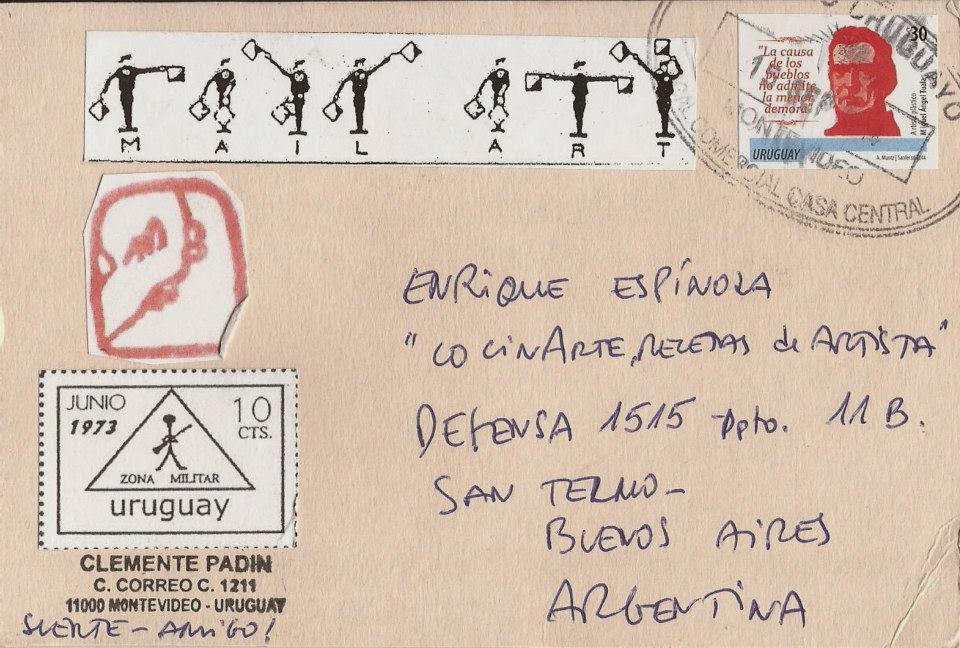 MAIL ART
"La causa
de los
pueblos
no admite
la menor
demora"
30
Artista plástico
URUGUAY
A. Muntz | Sanfer
MONTEVIDEO
COMERCIAL CASA CENTRAL
ENRIQUE ESPÍNOLA
"COCINARTE, RECETAS de ARTISTA"
DEFENSA 1515 Dpto. 11 B.
SAN TELMO-
BUENOS AIRES
ARGENTINA
JUNIO
1973
10
CTS.
ZONA MILITAR
uruguay
CLEMENTE PADIN
C. CORREO C. 1211
11000 MONTEVIDEO - URUGUAY
SUERTE - AMIGO!